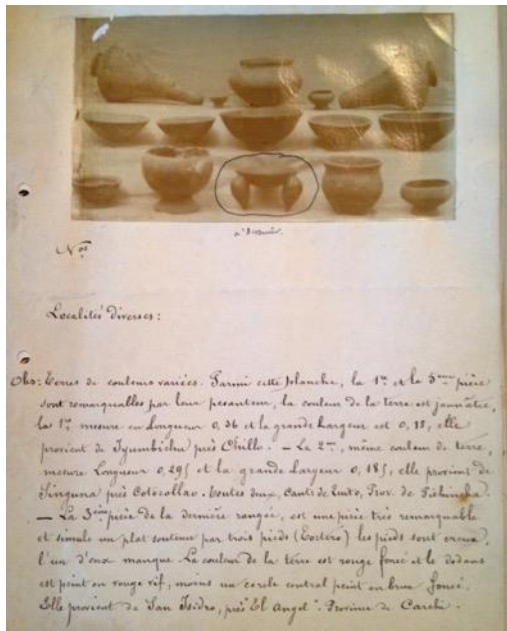 a dessiner.
Nos
Localités diverses:
Obs: Terres de couleurs variées. Parmi cette planche, la 1re et la 5ème pièce
sont remarquables par leur pesanteur, la couleur de la terre est jaunâtre,
la 1re mesure en longueur 0,36 et la grande largeur est 0,18, elle
provient de près Chillo. — La 2me, même couleur de terre,
mesure Longueur 0,295 et la grande Largeur 0,185, elle provient de
près Cotocollao. toutes deux, Cant. de Quito, Prov. de Pichincha.
— La 3ème pièce de la dernière rangée, est une pièce très remarquable
et simule un plat soutenu par trois pieds (Tortero) les pieds sont creux,
l'un d'eux manque. La couleur de la terre est rouge foncé et le dedans
est peint en rouge vif, moins un cercle central peint en brun foncé.
Elle provient de San Isidro, près "El Angel". Province de Carchi.